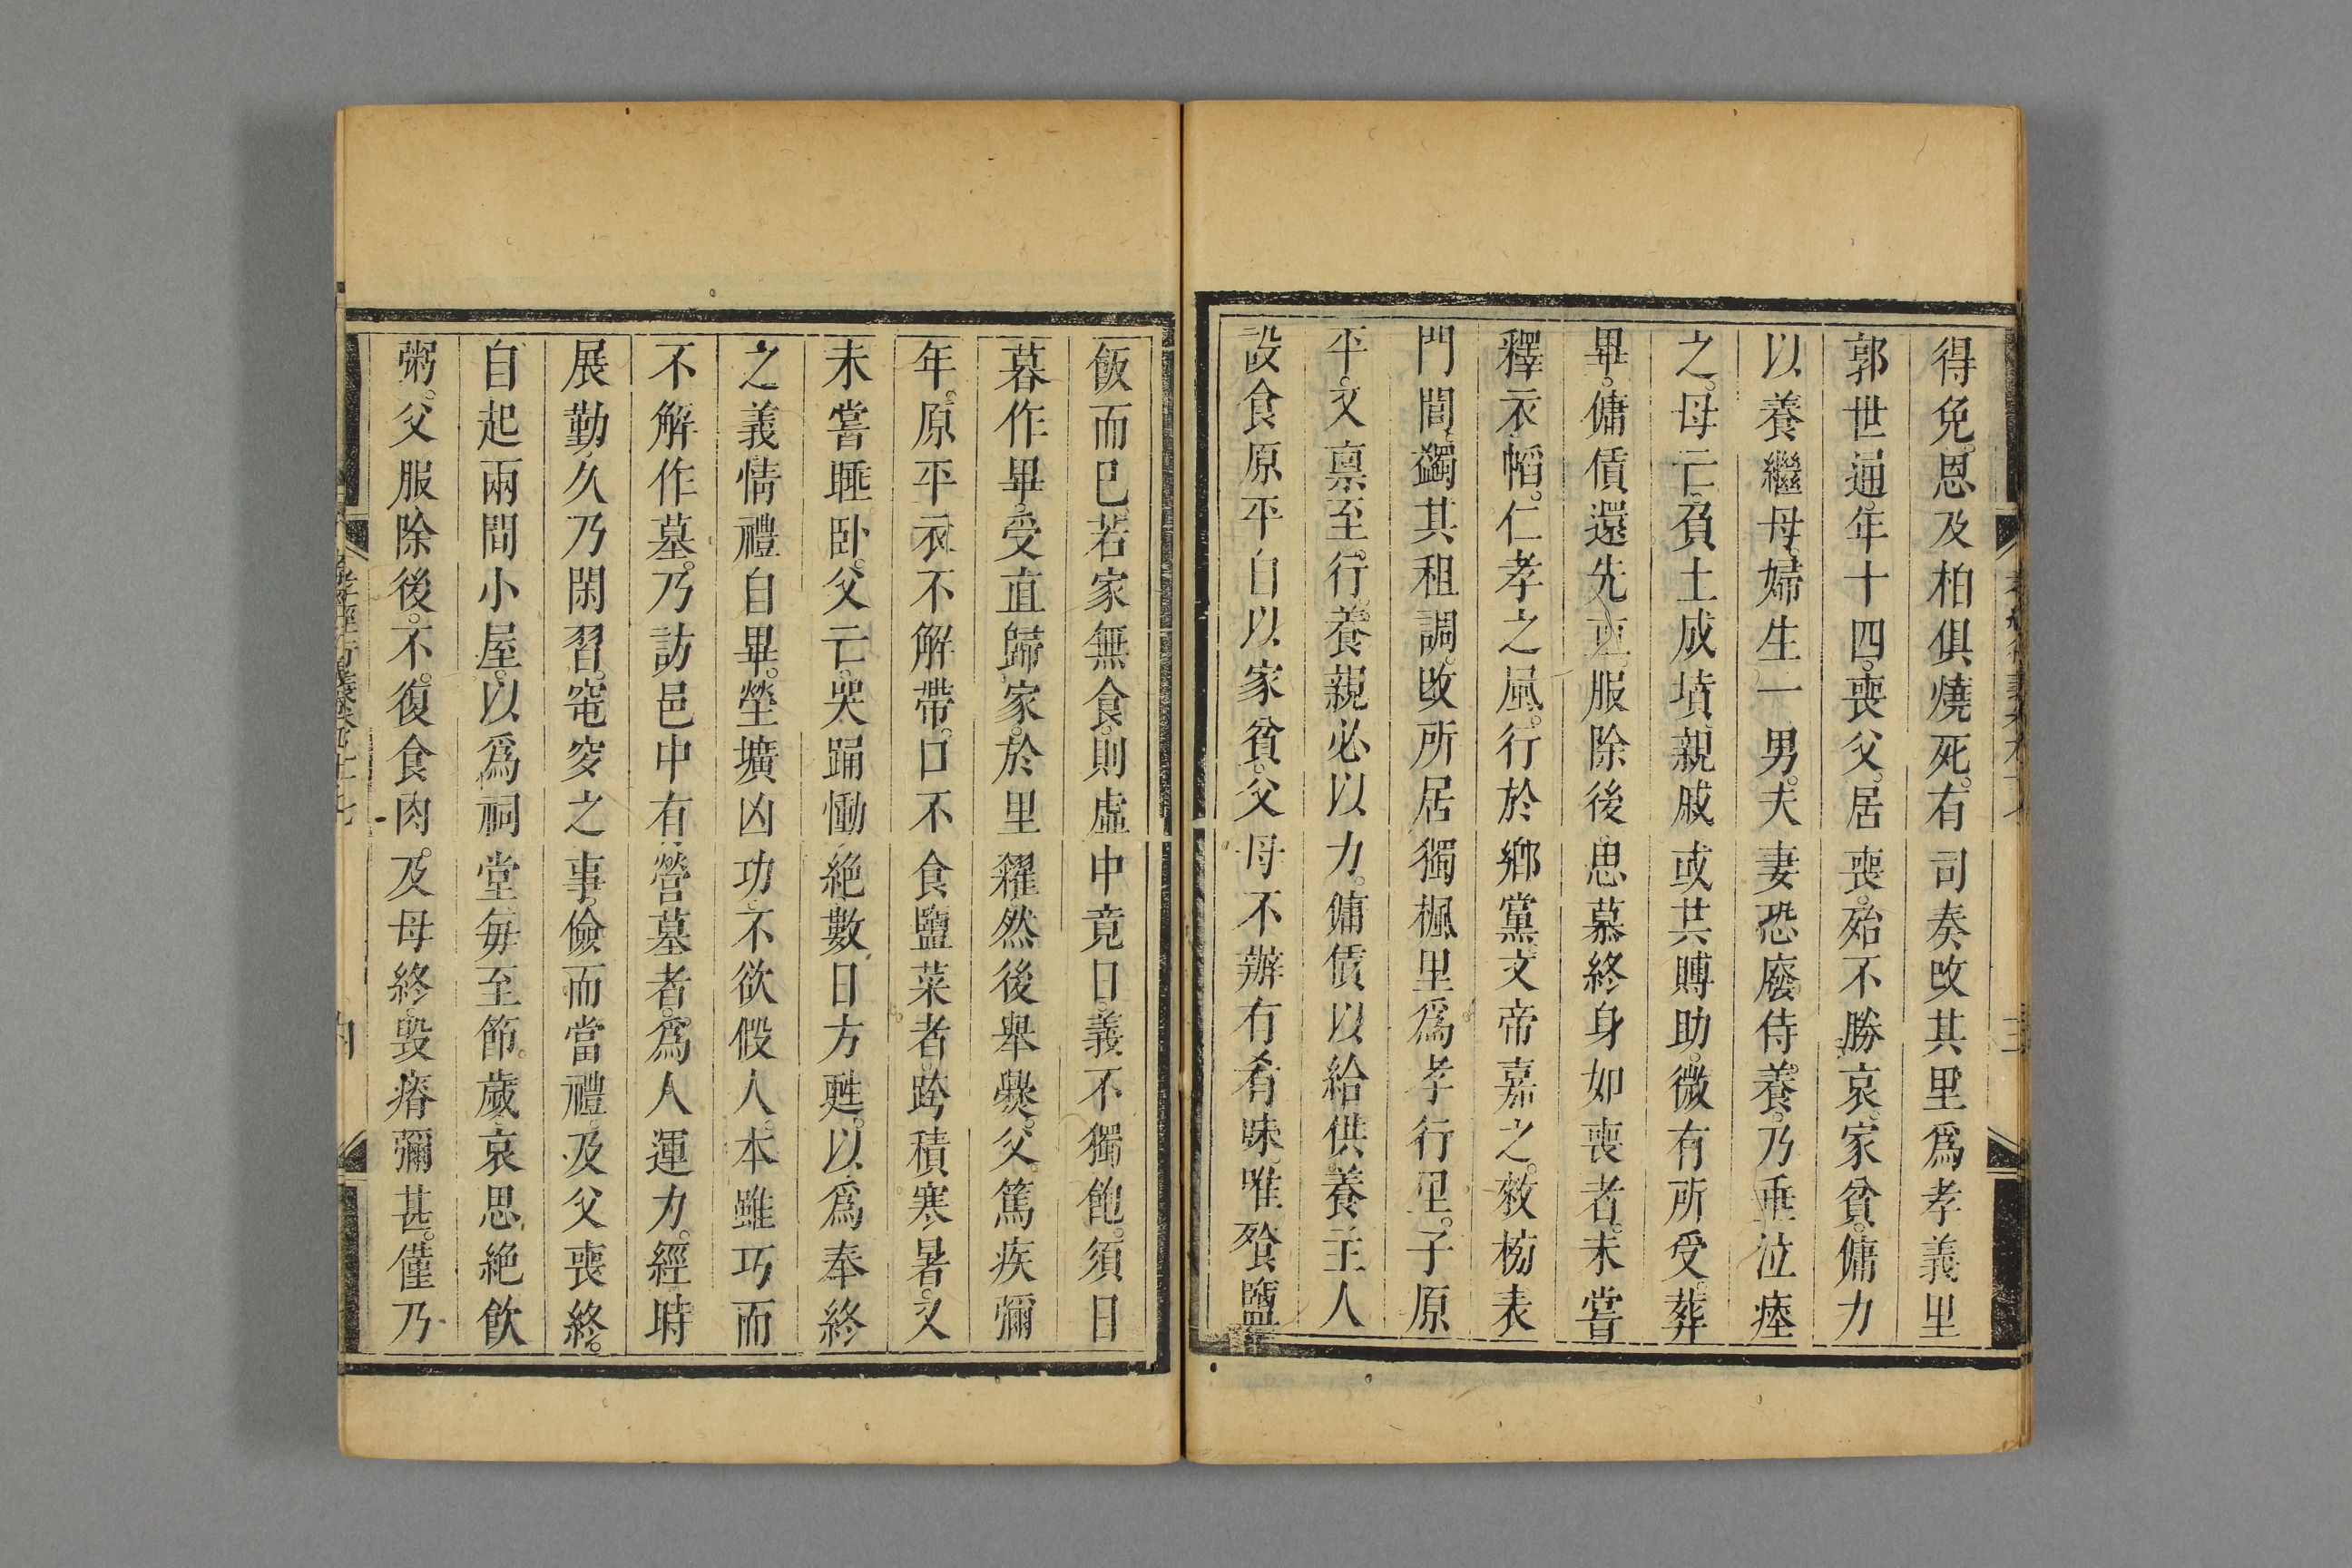 得免。恩及柏俱燒死。有司奏改其里爲孝義里
郭世通。年十四。喪父。居喪。殆不勝哀。家貧。傭力
以養繼母。婦生一男。夫妻恐廢侍養。乃垂泣瘞
之。母亡。負土成墳。親戚或共賻助。微有所受。葬
畢。傭賃還先直。服除後。思慕終身如喪者。未嘗
釋衣幍。仁孝之風。行於鄉黨。文帝嘉之。敕榜表
門閭。蠲其租調。改所居獨楓里爲孝行里。子原
平。又稟至。行。養親必以力。傭賃以給供養。主人
設食。原平自以家貧。父母不辦有肴味。唯飡鹽
飯而已。若家無食。則虛中竟日。義不獨飽。須日
暮作畢。受直歸家。於里糴。然後舉爨。父。篤疾彌
年。原平衣不解帶。口不食鹽菜者。跨積寒暑。又
未嘗睡臥。父亡。哭踊慟絶。數日方甦。以爲奉終
之義。情禮自畢。塋壙凶功。不欲假人。本雖巧而
不解作墓。乃訪邑中有營墓者。爲人運力。經時
展勤。久乃閑習。窀穸之事。儉而當禮。及父喪終。
自起兩間小屋。以爲祠堂。每至節歲。哀思絶飲
粥。父服除後。不復食肉。及母終。毀瘠彌甚。僅乃
孝經衍義卷五十七